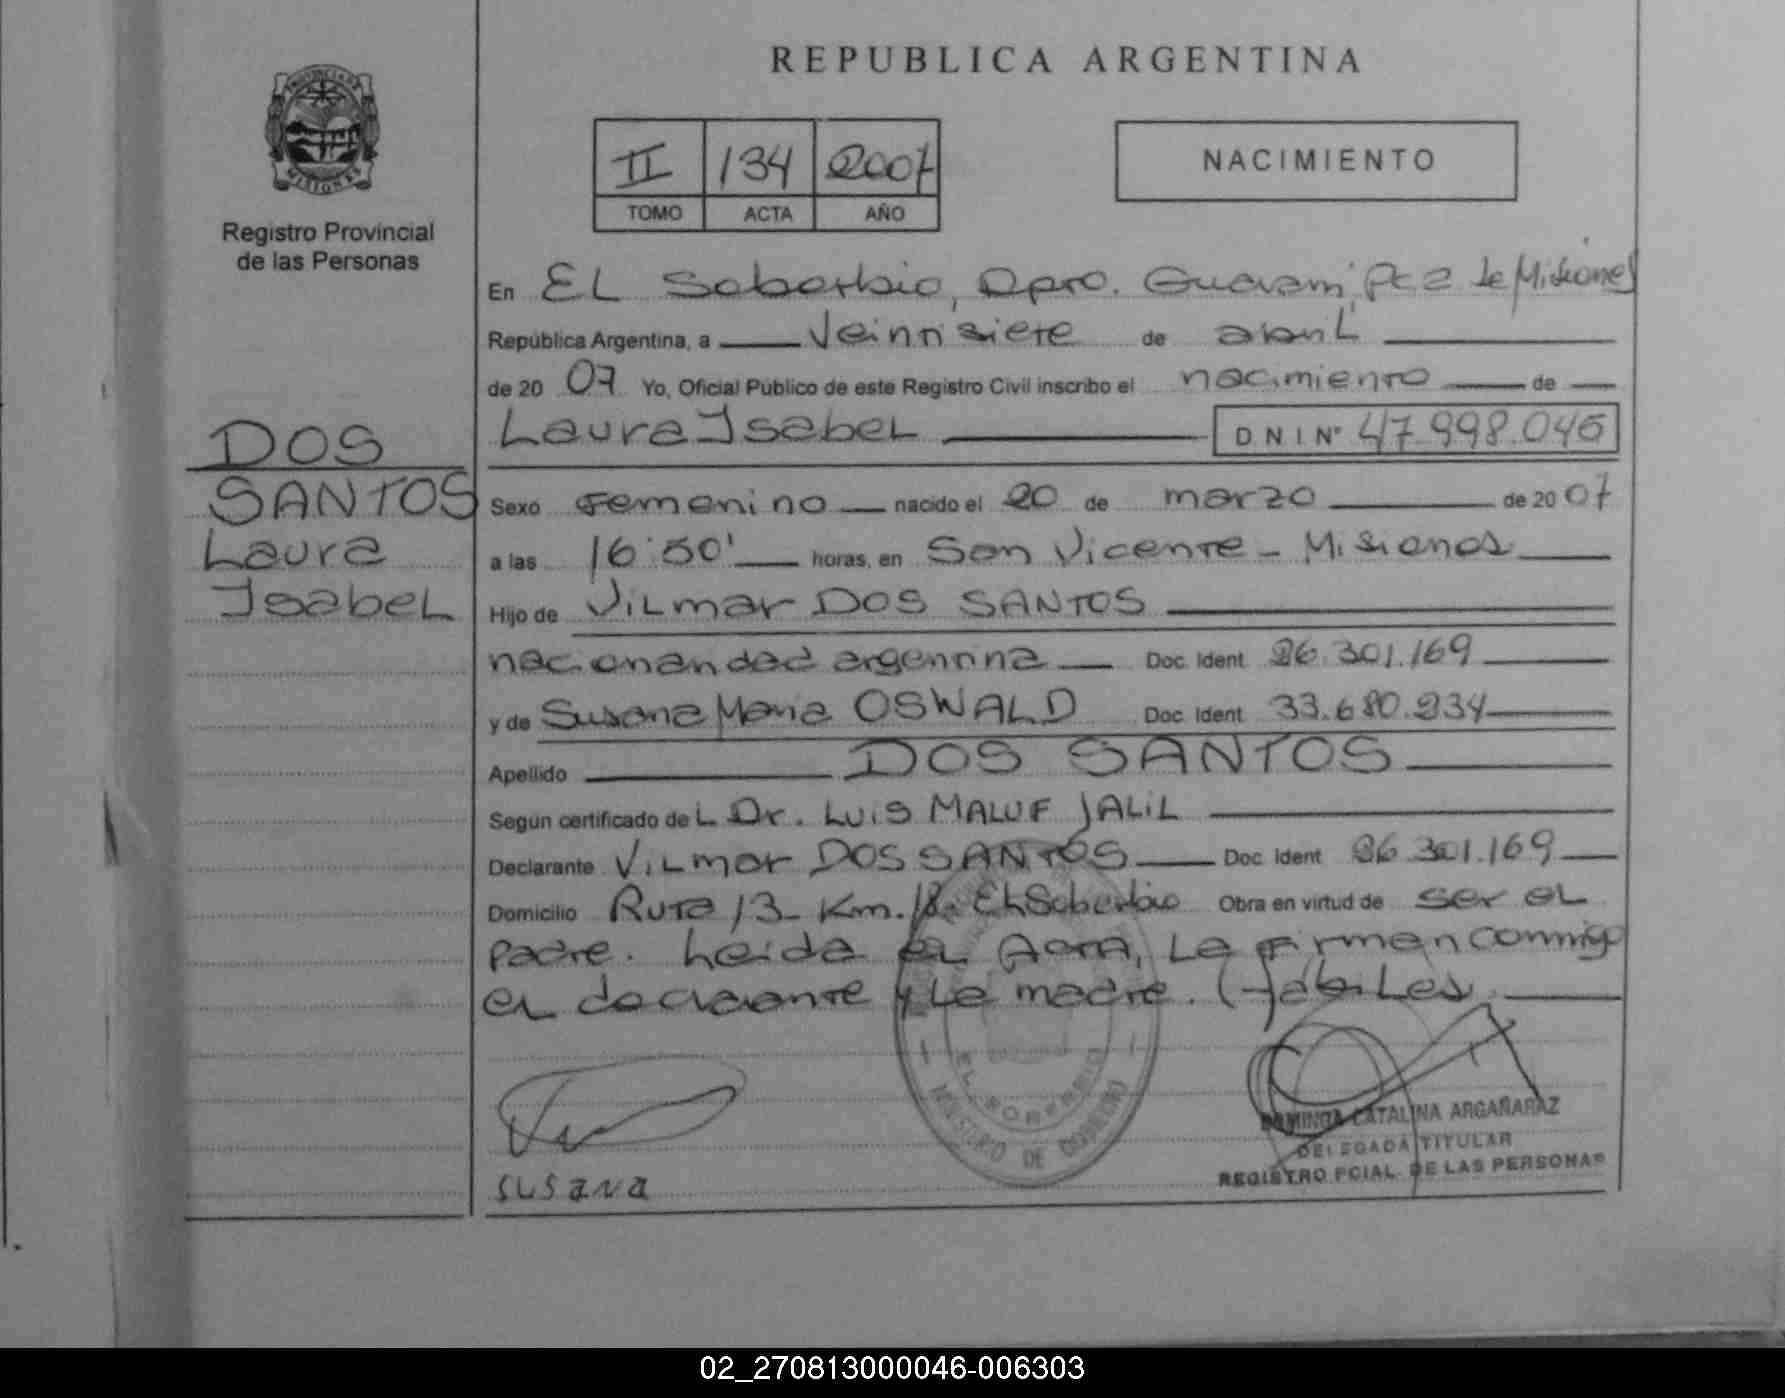 REPUBLICA ARGENTINA
PROVINCIA DE
MISIONES
Registro Provincial
de las Personas
II 134 2007
TOMO ACTA AÑO
NACIMIENTO
En EL Soberbio, Dpto. Guarani, Pcia de Misiones
República Argentina, a Veintisiete de abril
de 20 07 Yo, Oficial Público de este Registro Civil inscribo el nacimiento de
Laura Isabel D N I Nº 47.998.046
DOS
SANTOS
Laura
Isabel
Sexo Femenino nacido el 20 de marzo de 20 07
a las horas, en San Vicente - Misiones
Hijo de Vilmar DOS SANTOS
argentina Doc. Ident. 26.301.169
y de Susana Maria OSWALD Doc. Ident. 33.680.234
Apellido DOS SANTOS
Según certificado del Dr. LUIS MALUF JALIL
Declarante Vilmar DOS SANTOS Doc. Ident. 26.301.169
Domicilio Ruta 13 - Km. 18 - El Soberbio Obra en virtud de ser el
padre. Leida el Acta, la firman conmigo
el declarante y la madre. (
susana
EL SOBERBIO
MINISTERIO DE GOBIERNO
DOMINGA CATALINA ARGAÑARAZ
DELEGADA TITULAR
REGISTRO PCIAL. DE LAS PERSONAS
02_270813000046-006303